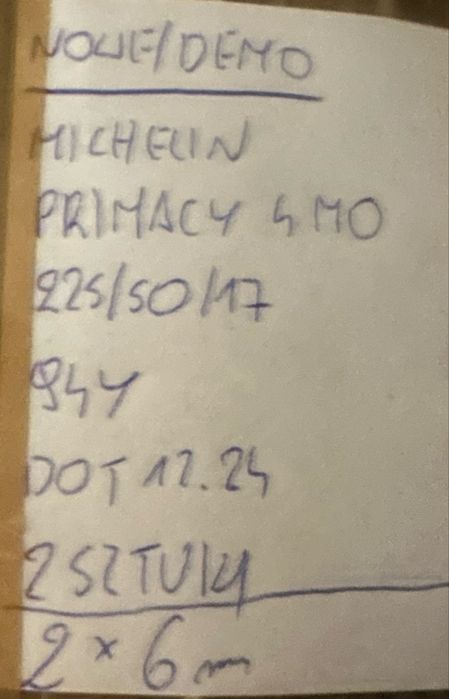 NOWE/DEMO
MICHELIN
PRIMACY 4 MO
225/50/17
94Y
DOT 12.24
2 SZTUKI
2 x 6 m